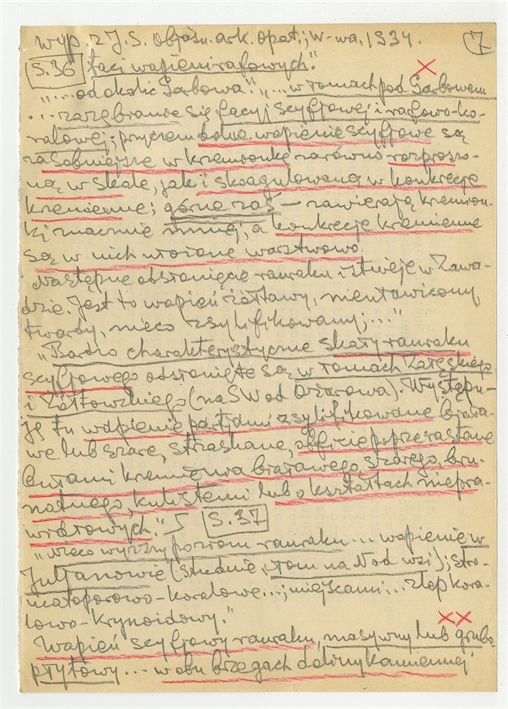 Wyp. z J.S. objaśn. ark. Opat.; W-wa, 1934. 7
S.36 facj wapieni rafowych."
"... od okolic Garbowa"... "... w łomach pod Garbowem
... zazębianie się facyj scyfjowej i rafowo-ko-
ralowej; przyczem dolne wapienie scyfjowe są
zasobniejsze w krzemionkę zarówno rozproszo-
ną w skale, jak i skoagulowaną w konkrecje
krzemienne; górne zaś — zawierają krzemion-
ki znacznie mniej, a konkrecje krzemienne
są w nich ułożone warstwowo.
Następne odsłonięcie rauraku istnieje w Zawa-
dzie. Jest to wapień żółtawy, nieuławicony
twardy, nieco zsylifikowany;..."
"Bardzo charakterystyczne skały rauraku
scyfjowego odsłonięte są w łomach
i (na SW od Ożarowa). Występu-
je tu wapienie partjami zsylifikowane białа-
we lub szare, strzaskane, obficie poprzerastane
bułami krzemienia białawego, szarego, bru-
natnego, kulistemi lub o kształtach niepra-
widłowych." S.37
"Nieco wyższy poziom rauraku... wapienie w
Juljanowie (studnie, łom na N od wsi); stro-
matoporowo-koralowe...; miejscami... zlep kora-
lowo-krynoidowy."
Wapień scyfjowy rauraku, masywny lub grubo-
płytowy... w obu brzegach doliny Kamiennej